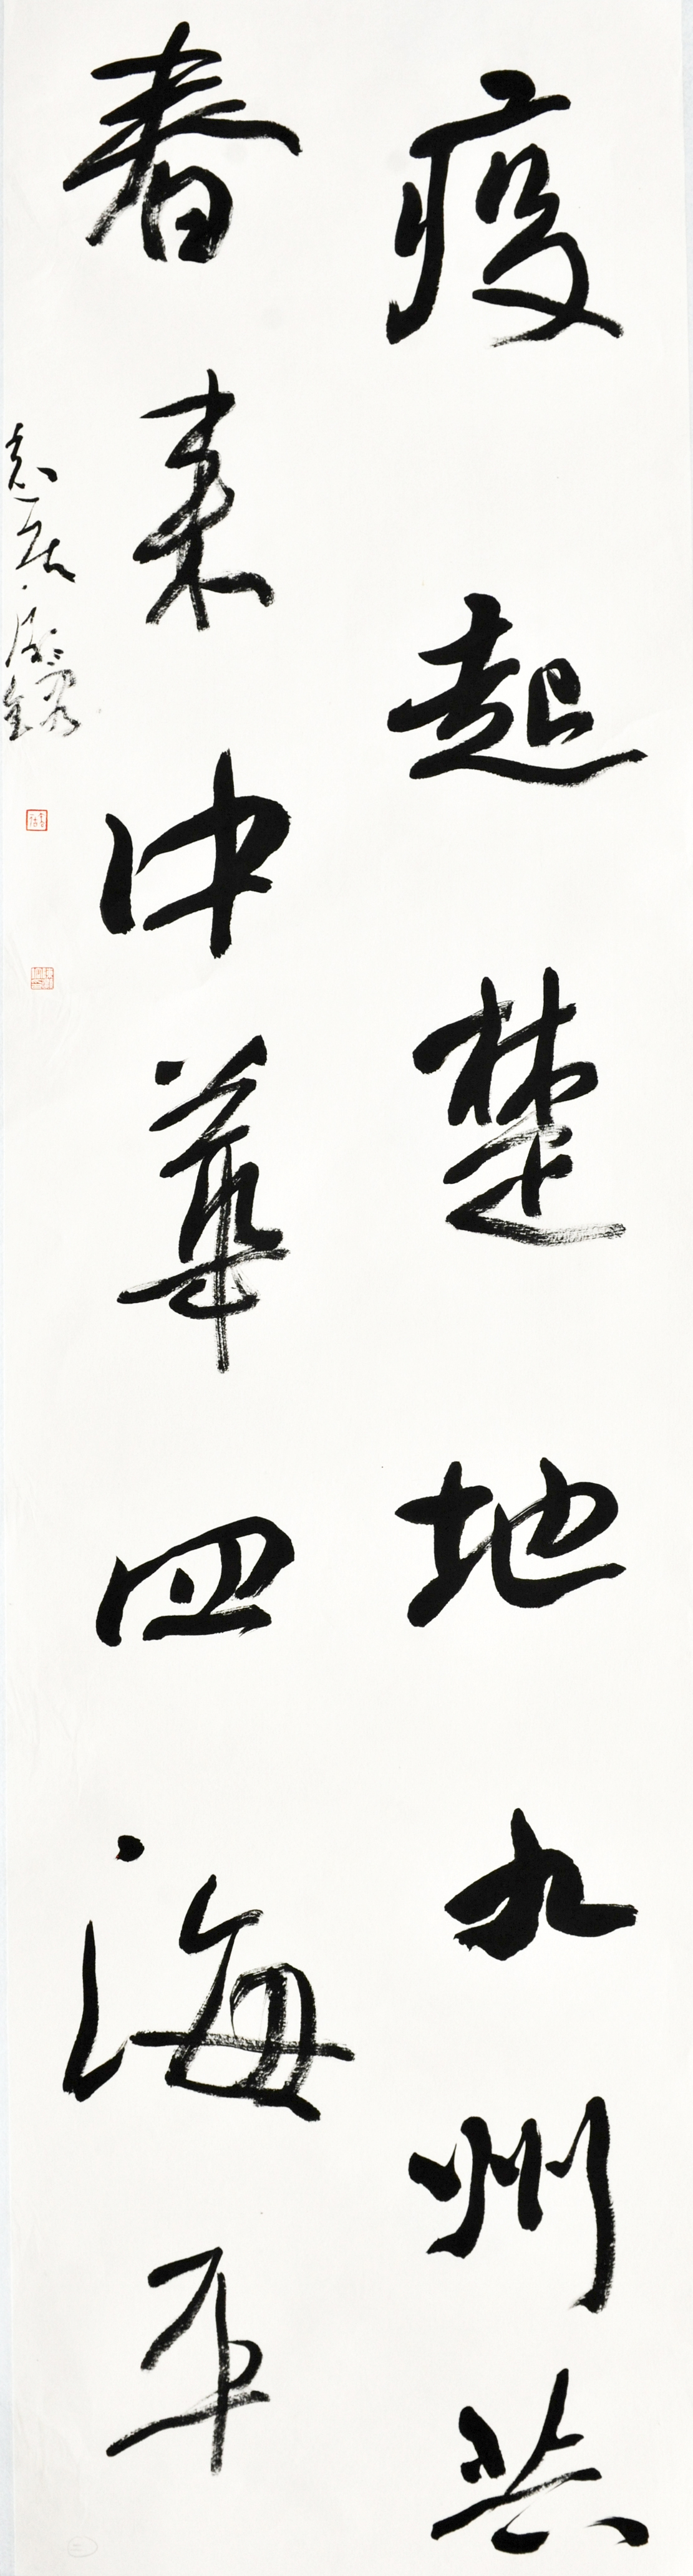 疫起楚地九州共
春来中華四海平